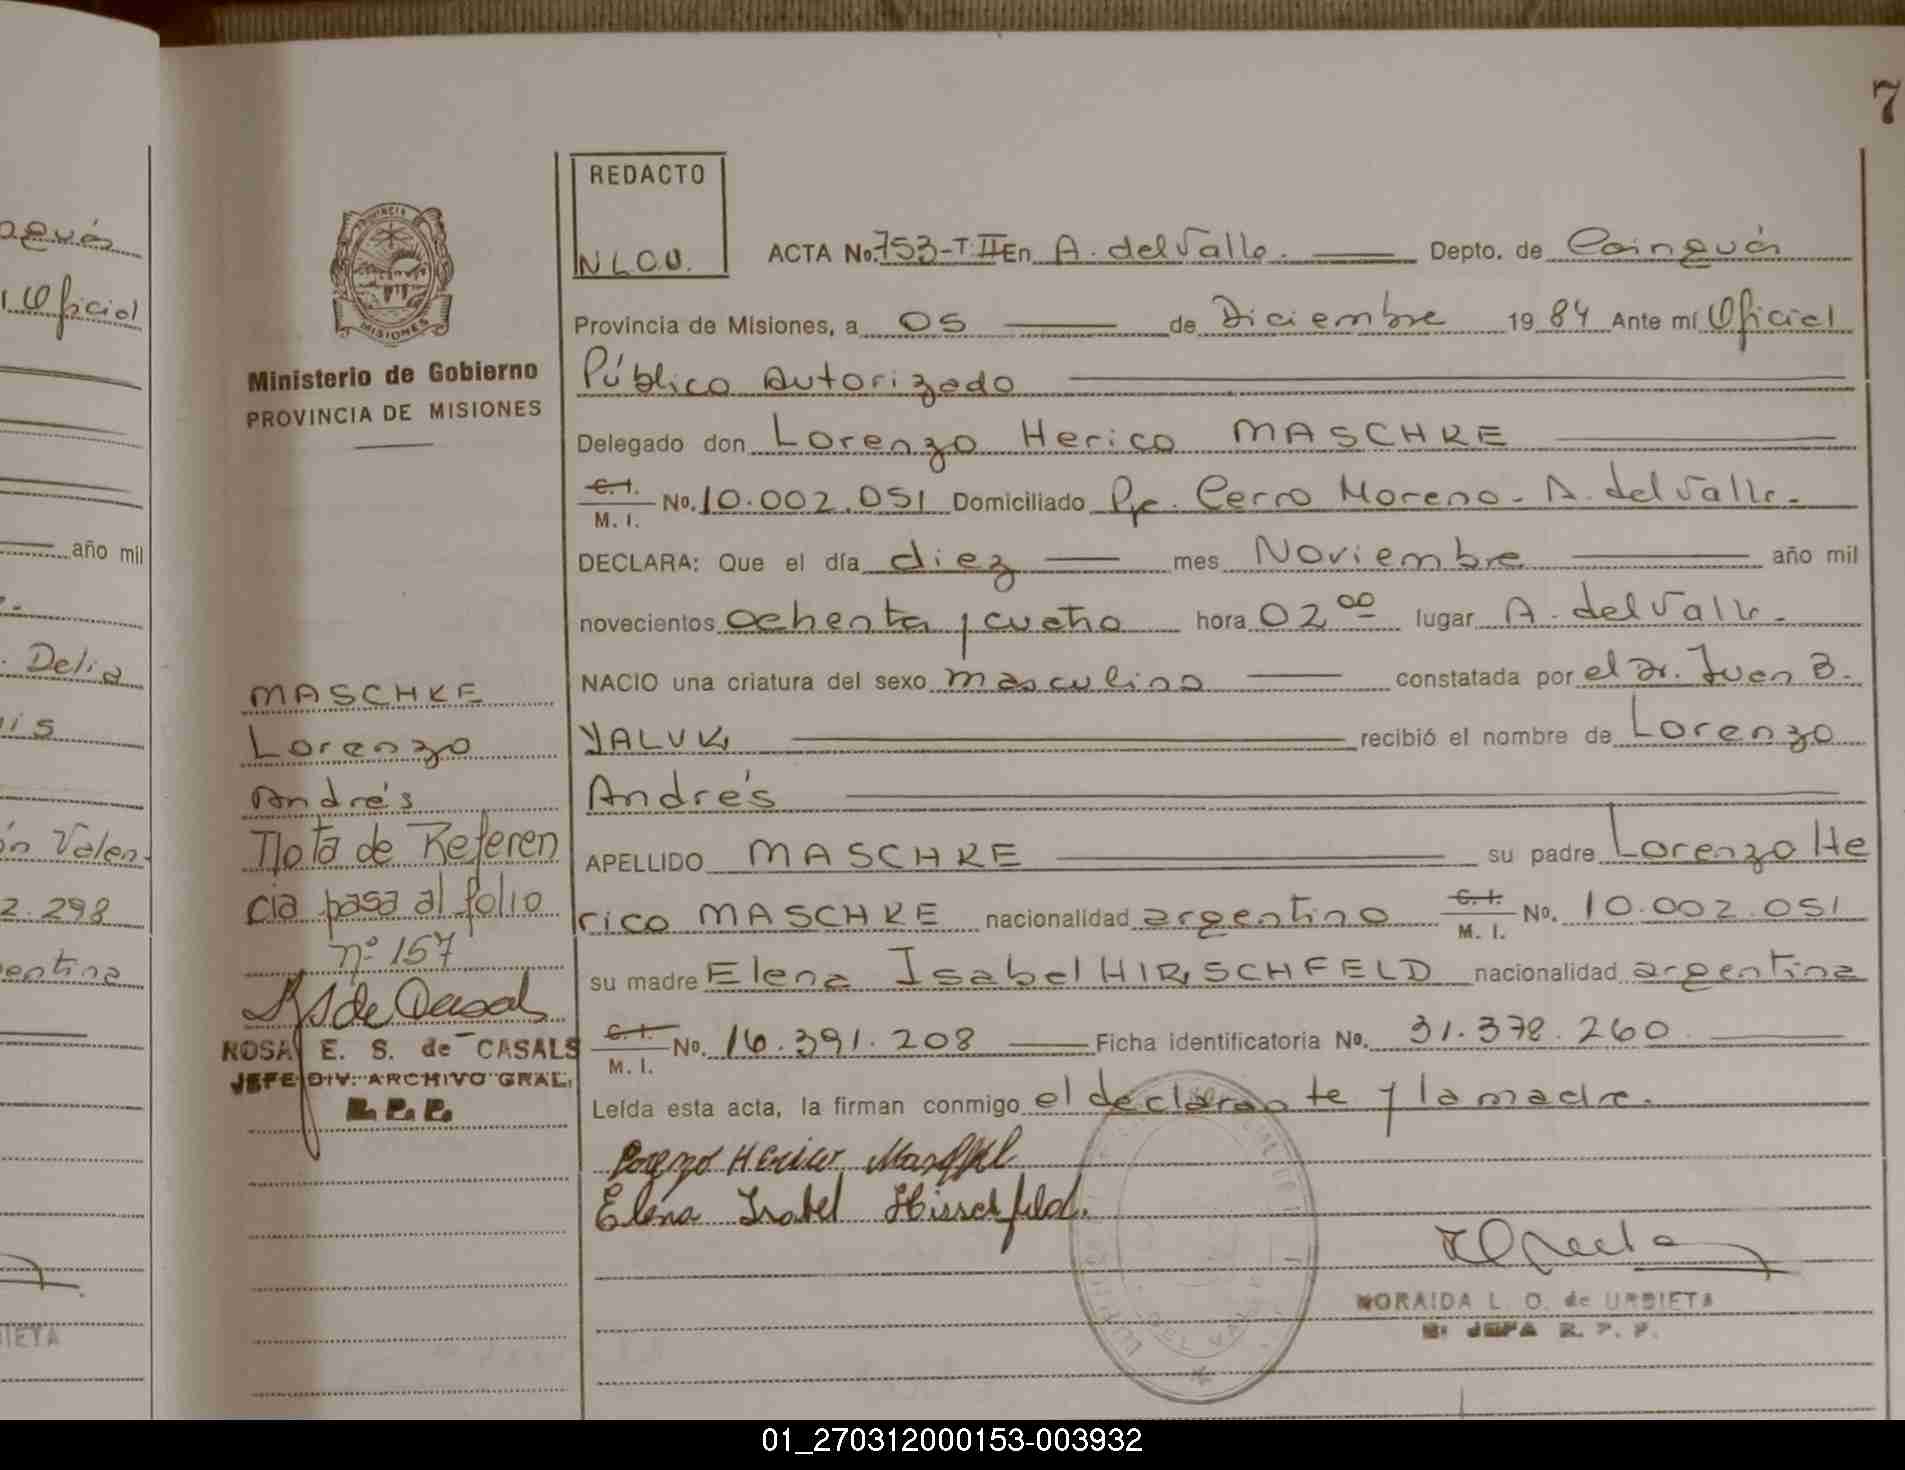 7
oguás
Oficial
año mil
Delia
is
ón Valen-
2.298
entina
BIETA
PROVINCIA
MISIONES
Ministerio de Gobierno
PROVINCIA DE MISIONES
MASCHKE
Lorenzo
Andrés
Nota de Referen
cia pasa al folio
nº 157
ROSA E. S. de CASALS
JEFE DIV. ARCHIVO GRAL.
R. P. P.
REDACTO
N L O U.
ACTA No. 753-T II En A. del Valle. Depto. de Cainguás
Provincia de Misiones, a 05 de Diciembre 19 84 Ante mí Oficial
Público Autorizado
Delegado don Lorenzo Herico MASCHKE
C. I.
M. I. No. 10.002.051 Domiciliado Pje. Cerro Moreno - A. del Valle.
DECLARA: Que el día diez mes Noviembre año mil
novecientos ochenta y cuatro hora 02 00 lugar A. del Valle.
NACIO una criatura del sexo masculino constatada por el Dr. Juan B.
YALUK, recibió el nombre de Lorenzo
Andrés
APELLIDO MASCHKE su padre Lorenzo He
rico MASCHKE nacionalidad argentino C. I. M. I. No. 10.002.051
su madre Elena Isabel HIRSCHFELD nacionalidad argentina
C. I.
M. I. No. 16.391.208 Ficha identificatoria No. 31.378.260
Leída esta acta, la firman conmigo el declarante y la madre.
Lorenzo Herico Maschke
Elena Isabel Hirschfeld.
NORAIDA L. O. de URBIETA
JEFA R. P. P.
01_270312000153-003932